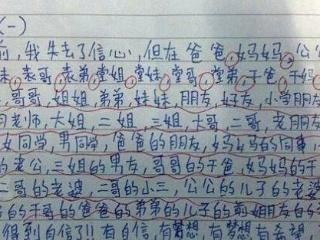 (一)
前,我失去了信心,但在爸爸,妈妈,公
妹,表哥,表弟,堂姐,堂妹,堂哥,堂弟,干爸,干妈
,哥哥,姐姐,弟弟,妹妹,朋友,好友,小学朋友
司老师,大姐,二姐,三姐,大哥,二哥,老朋友
女同学,男同学,爸爸的朋友,妈妈的同事,
的老公,三姐的男友,哥哥的干爸,妈妈的干
二哥的老婆,二哥的小三,公公的儿子的老婆
的干哥的爸爸的弟弟的儿子的前女朋友的
得到自信了!!有自信,有梦想,有梦想有希望